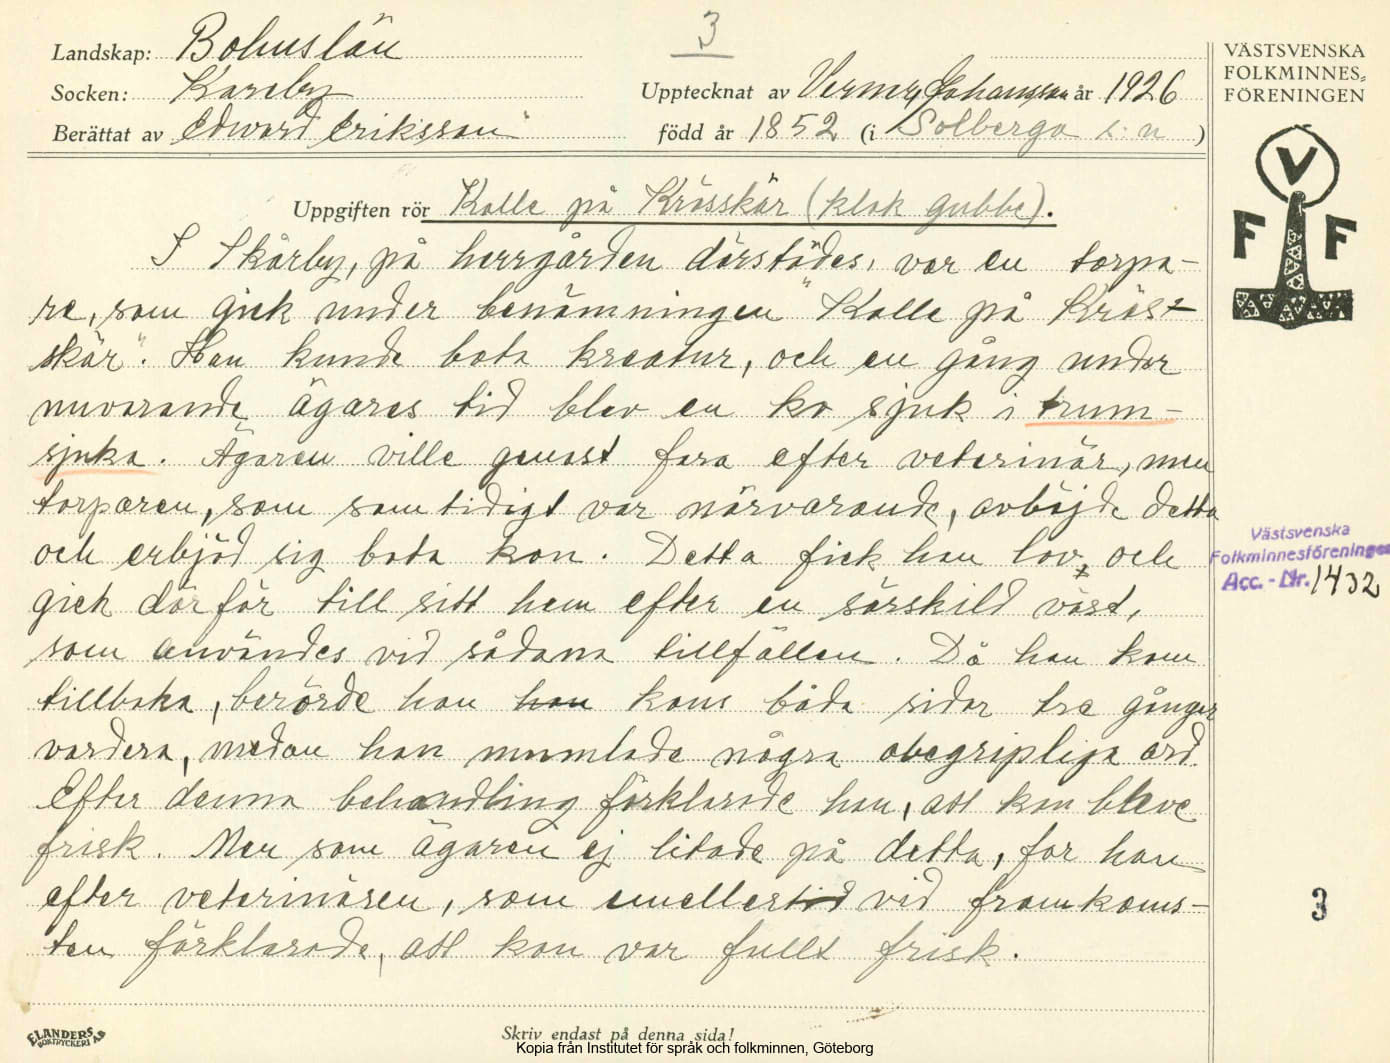 3
Landskap: Bohuslän
Socken: Kareby
Upptecknat av Verner Johansson år 1926
Berättat av Edward Eriksson
född år 1852 (i Solberga s:n)
VÄSTSVENSKA
FOLKMINNES=
FÖRENINGEN
V
F F
Uppgiften rör Kalle på Krösskär (klok gubbe).
I Skårby, på herrgården därstädes, var en torpa-
re, som gick under benämningen "Kalle på Kröst-
skär". Han kunde bota kreatur, och en gång under
nuvarande ägares tid blev en ko sjuk i trum-
sjuka. Ägaren ville genast fara efter veterinär, men
torparen, som samtidigt var närvarande, avböjde detta
och erbjöd sig bota kon. Detta fick han lov, och
gick därför till sitt hem efter en särskild väst,
som användes vid sådana tillfällen. Då han kom
tillbaka, berörde han han kons båda sidor tre gånger
vardera, medan han mumlade några obegripliga ord.
Efter denna behandling förklarade han, att kon bleve
frisk. Men som ägaren ej litade på detta, for han
efter veterinären, som emellertid vid framkoms-
ten förklarade, att kon var fullt frisk.
Västsvenska
Folkminnesföreningen
Acc. - Nr. 1432
3
ELANDERS
BOKTRYCKERI AB
Skriv endast på denna sida!
Kopia från Institutet för språk och folkminnen, Göteborg